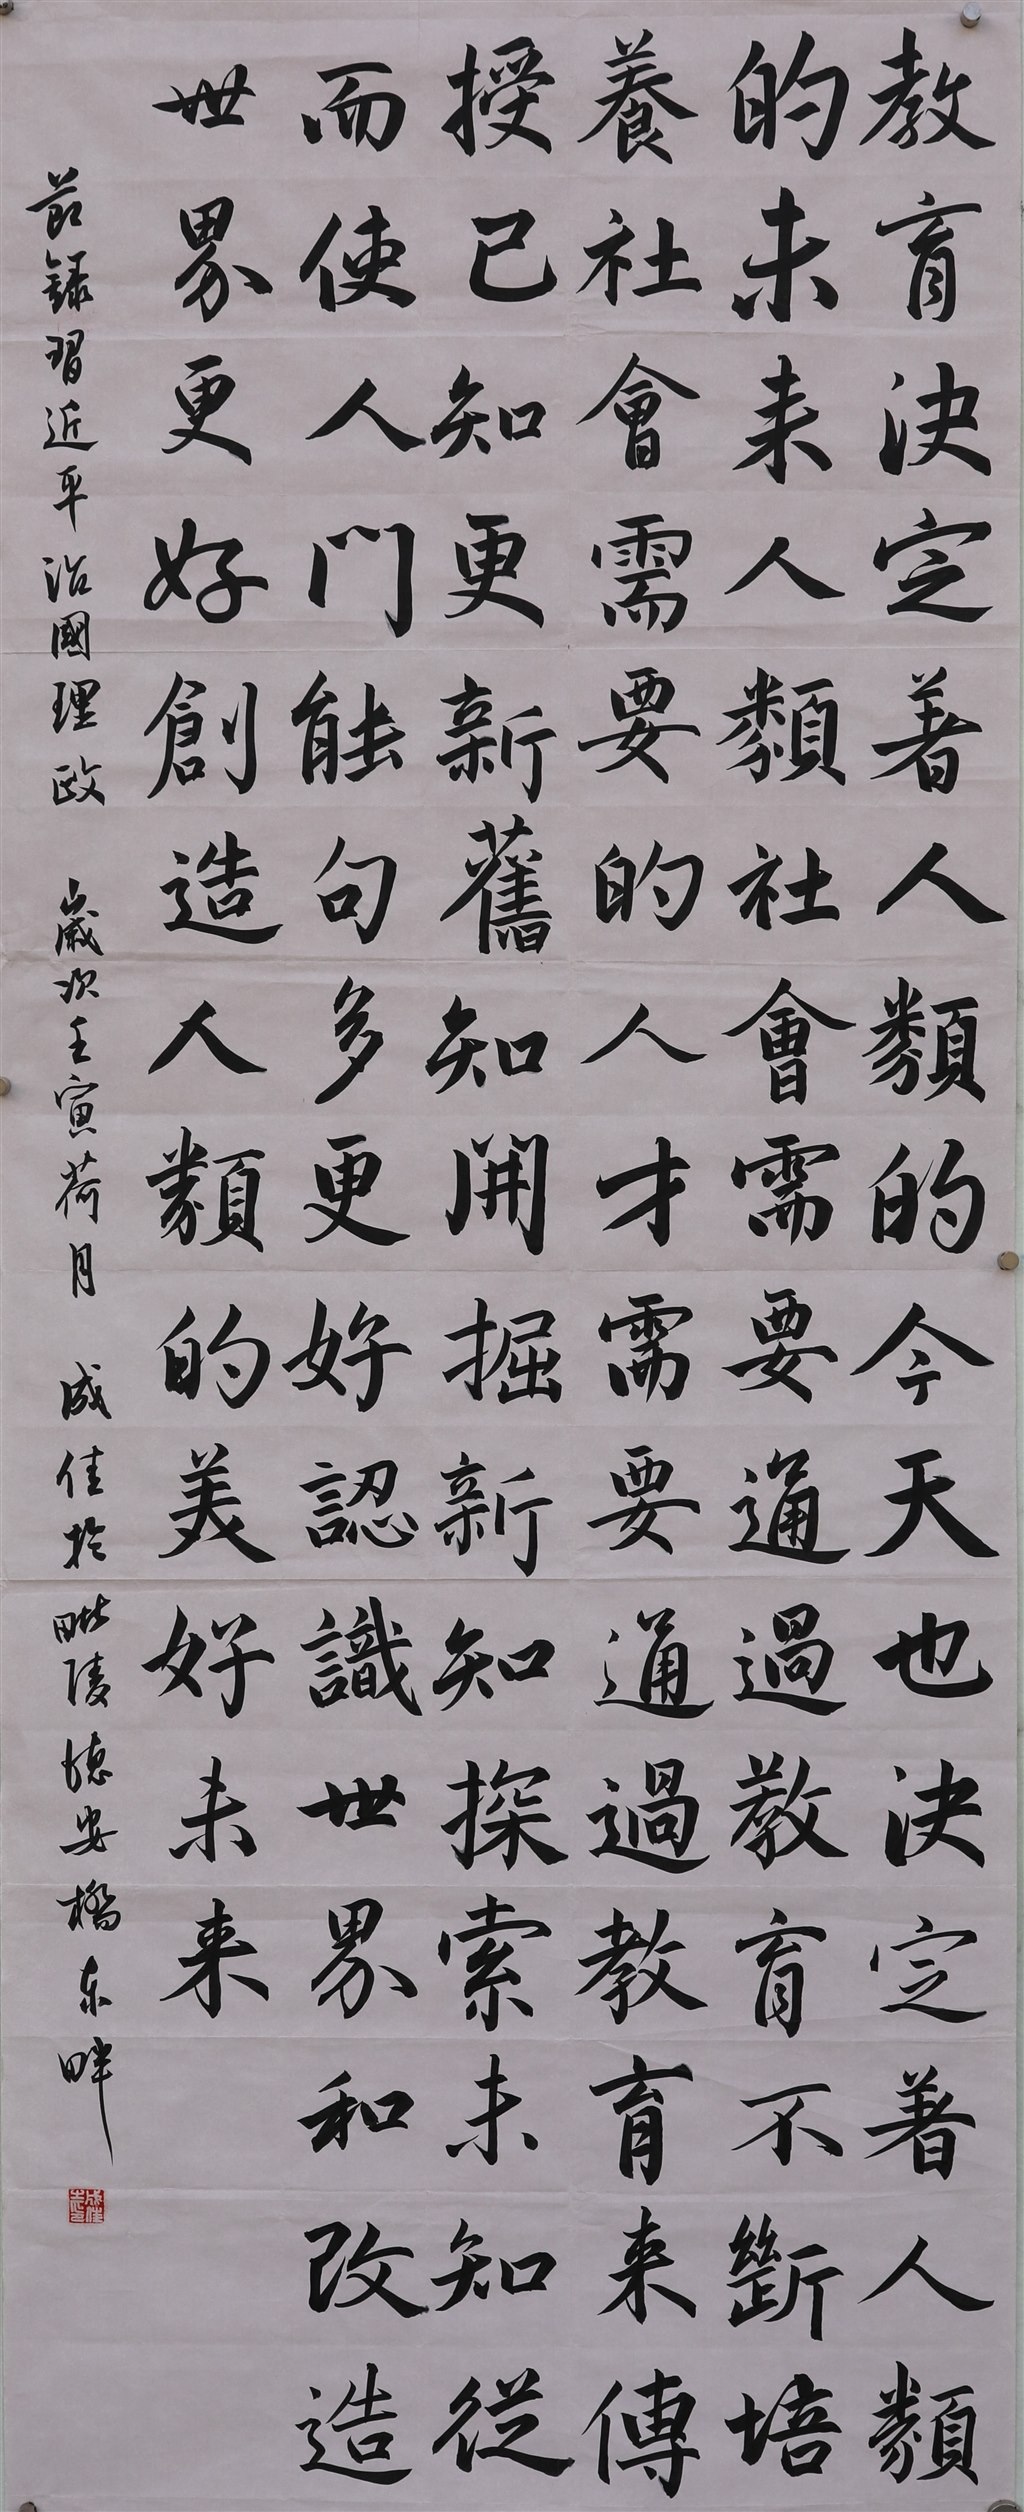 教育決定著人類的今天也決定著人類
的未来人類社會需要通過教育不斷培
養社會需要的人才需要通過教育来傳
授已知更新舊知開掘新知探索未知從
而使人門能句多更好認識世界和改造
世界更好創造人類的美好未来
節録習近平治國理政 歲次壬寅荷月 成佳於毗陵德安橋东畔